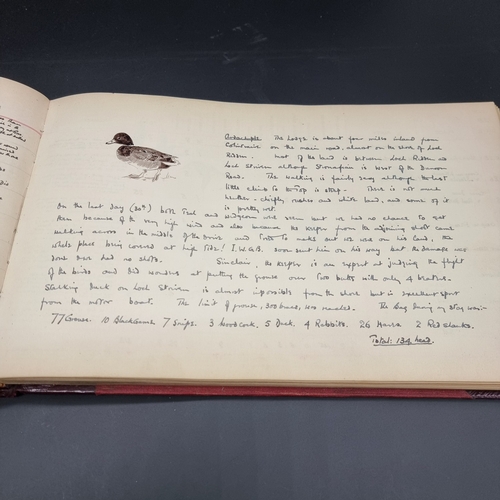 The Lodge is about four miles inland from
Colintraive on the main road, almost on the shore of Loch
Riddon. Most of the land is between Loch Riddon and
Loch Striven although Stronafian is west of the
Road. The walking is fairly easy although the first
little climb to the top is steep. There is not much
heather, chiefly rushes and white land, and some of it
is pretty wet.
On the last day (20th) both Teal and widgeon were seen but we had no chance to get
them because of the very high wind and also because the keeper from the adjoining shoot came
walking across in the middle of the drive and tried to make out we were on his land, the
whole place being covered at high tide! I.W.G.B. soon sent him on his way but the damage was
done and had no shots. Sinclair the keeper is an expert at judging the flight
of the birds and did wonders at putting the grouse over the butts with only 4 beaters.
Stalking Duck on Loch Striven is almost impossible from the shore but is excellent sport
from the motor boat. The limit of grouse, 300 brace, was reached. The Bag during my stay was:-
77 Grouse. 10 Blackgame. 7 Snipe. 3 Woodcock. 5 Duck. 4 Rabbits. 26 Hares. 2 Redshanks.
Total: 134 head.